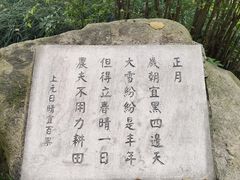 正月
歲朝宜黑四邊天
大雪紛紛是丰年
但得立春晴一日
農夫不用力耕田
上元日晴宜百果